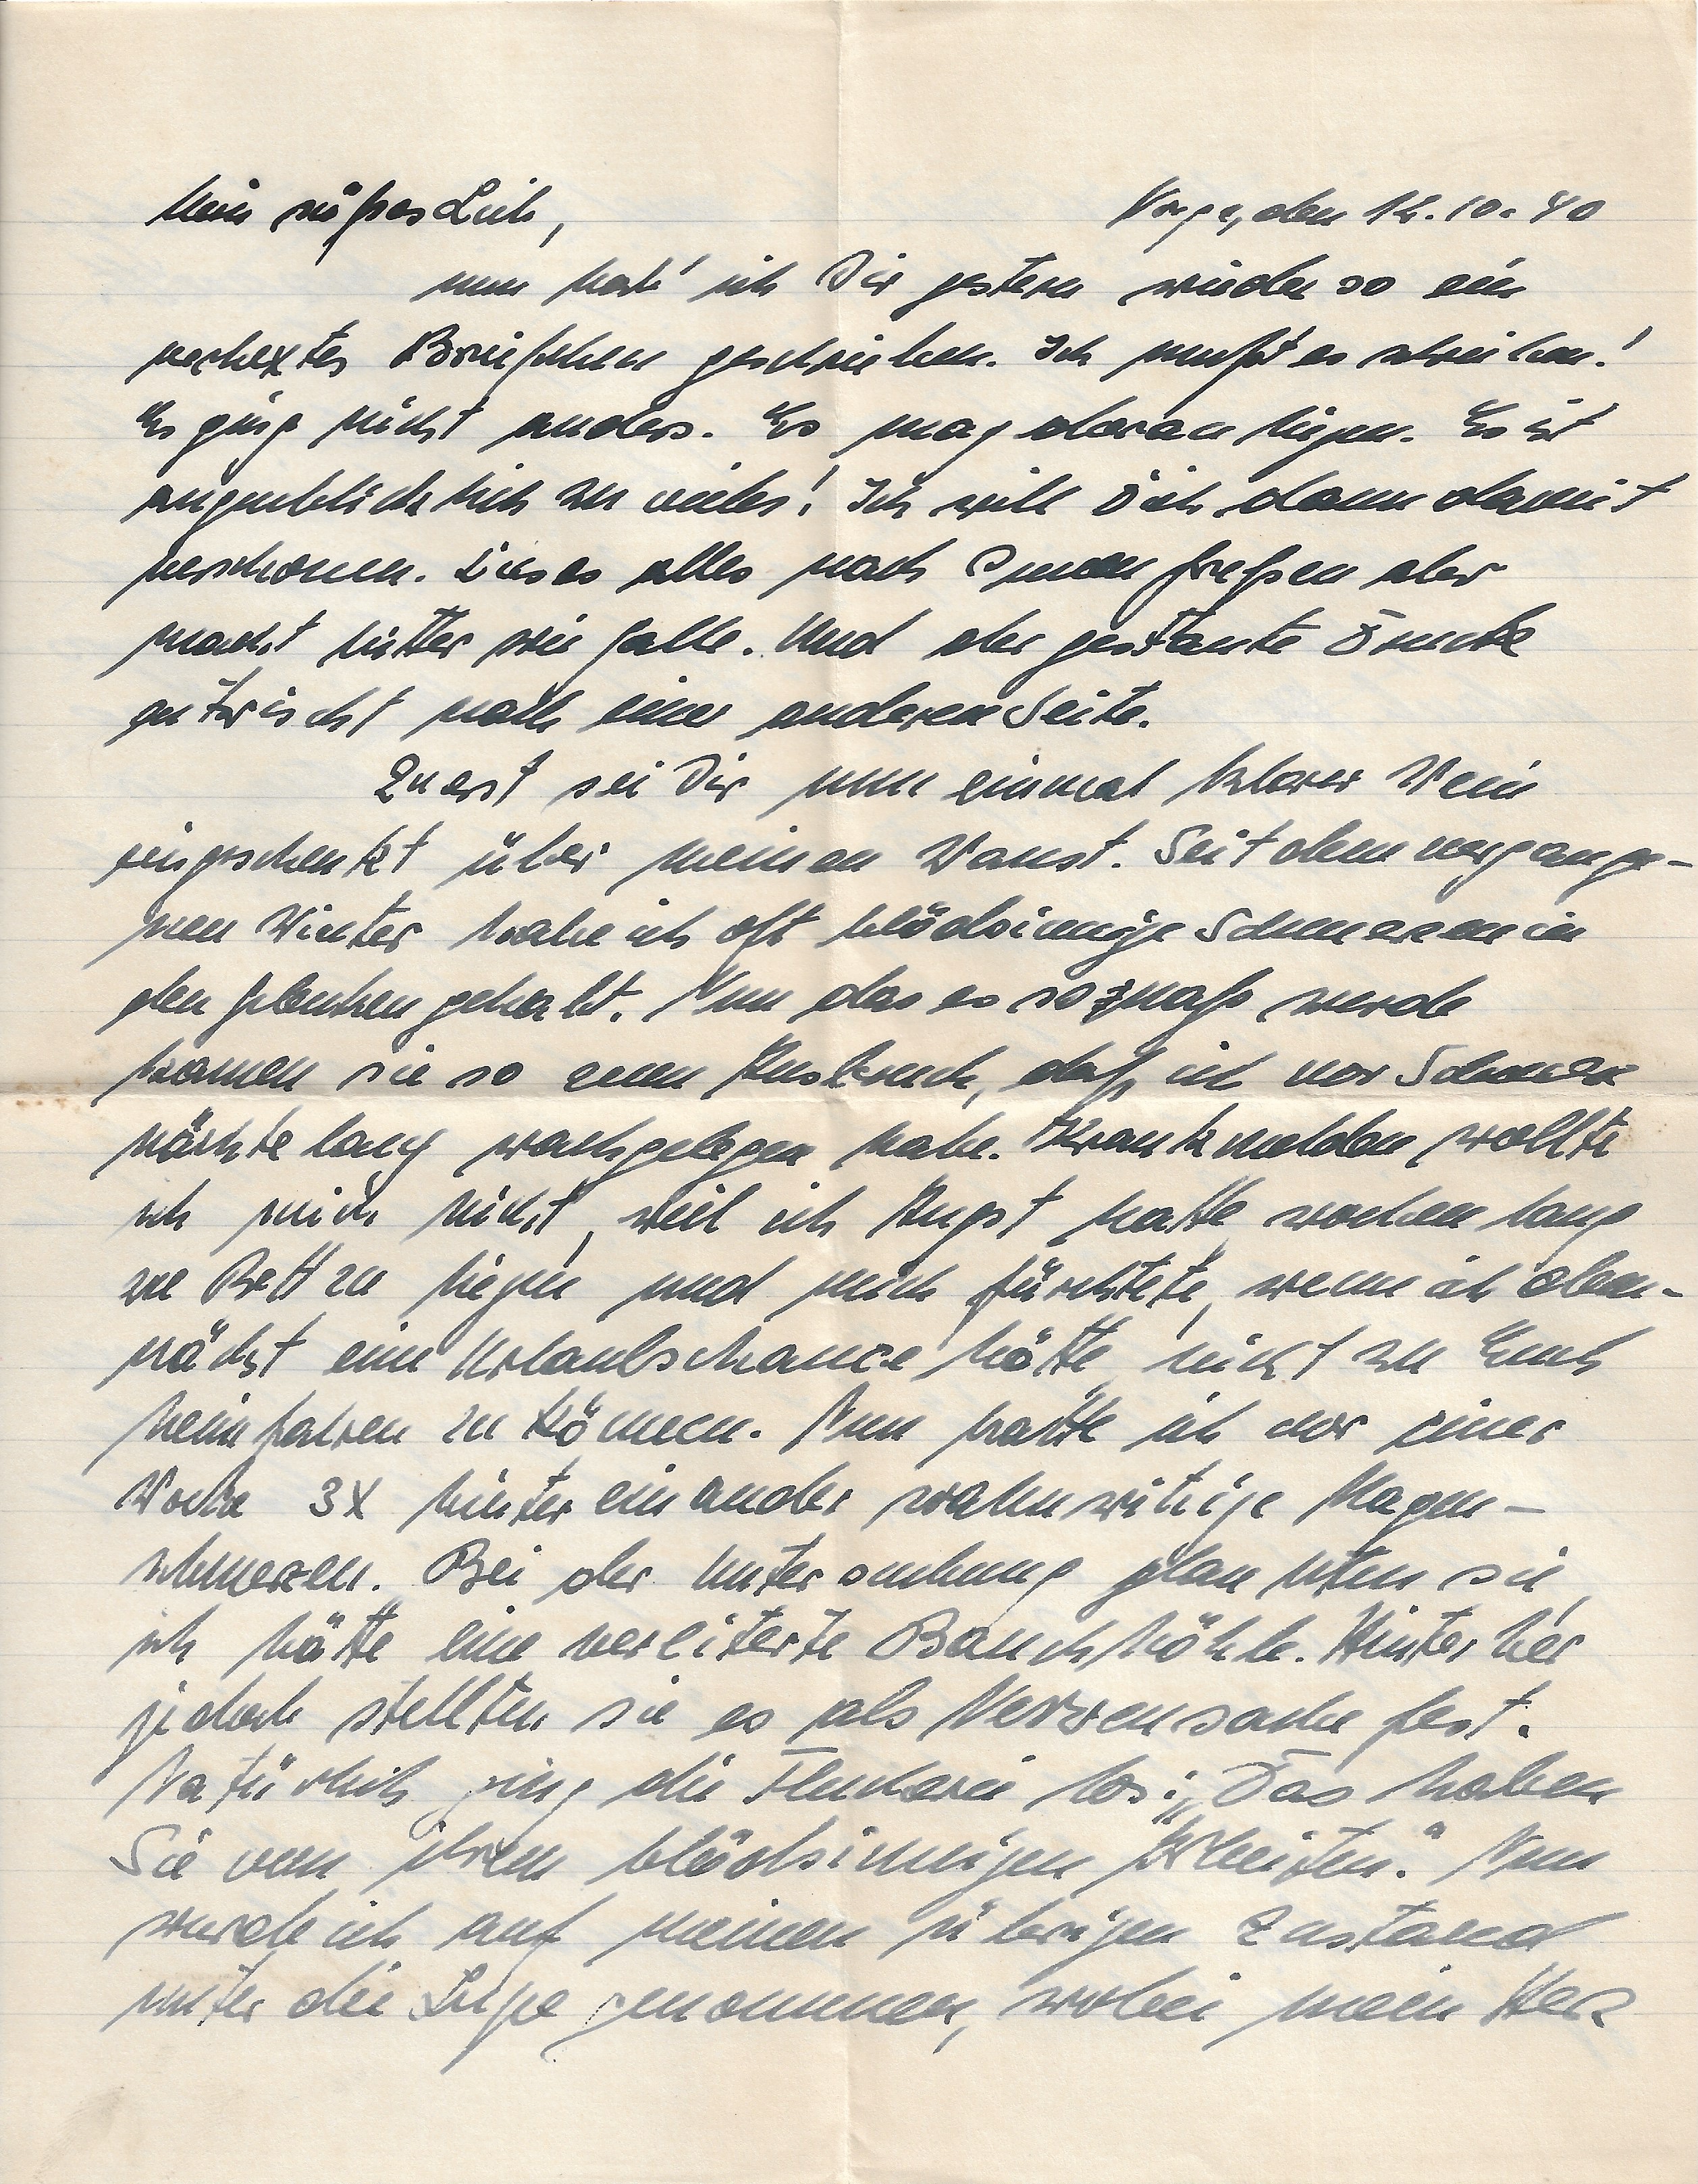 Mein süßes Lieb, den 12.10.40
nun hab' ich Dir gestern wieder so ein
verhextes Briefchen geschrieben. Ich mußt es schreiben!
Es ging nicht anders. Es mag daran liegen. Es ist
augenblicklich zu vieles! Ich will Dich dann damit
verschonen. Dieses alles nach fressen aber
macht bitter wie Galle. Und der gestaute Druck
entwischt nach einer anderen Seite.
Zuerst sei Dir nun einmal klarer Wein
eingeschenkt über meinen Wanst. Seit dem vergange-
nen Winter habe ich oft blödsinnige Schmerzen in
den gehabt. Nun das es so naß werde
kamen sie so zum Ausbruch, daß ich vor Schmerz
nächte lang wachgelegen habe. Krank melden wollte
ich mich nicht, weil ich Angst hatte wochen lang
zu Bett zu liegen und mich fürchtete, wenn ich dem-
nächst eine Urlaubschance hätte nicht zu Euch
heimfahren zu können. Nun hatte ich vor einer
Woche 3X hintereinander wahnwitzige Magen-
schmerzen. Bei der Untersuchung glaubten sie,
ich hätte eine vereiterte Bauchhöhle. Hinterher
jedoch stellten sie es als Nervensache fest.
Natürlich ging die Flucherei los: „Das haben
Sie von ihrem blödsinnigen Arbeiten." Nun
wurde ich auf meinen übrigen Zustand
unter die Lupe genommen, wobei mein Herz